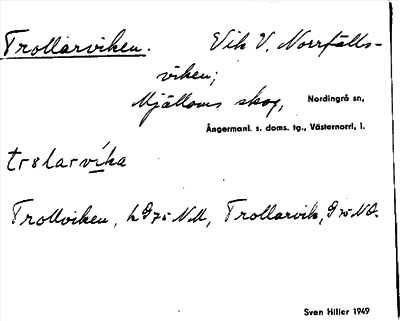 Trollarviken. Vik V. Norrfälls-
viken;
Mjälloms skog, Nordingrå sn,
Ångermanl. s. doms. tg., Västernorrl. l.
trslarvika
Trollviken, L 975 NM, Trollarvik, 975 NO.
Sven Hiller 1949